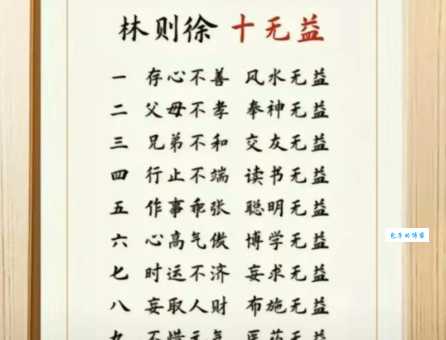 林则徐 十无益
一 存心不善 风水无益
二 父母不孝 奉神无益
三 兄弟不和 交友无益
四 行止不端 读书无益
五 作事乖张 聪明无益
六 心高气傲 博学无益
七 时运不济 妄求无益
八 妄取人财 布施无益
九 不惜元气 医药无益